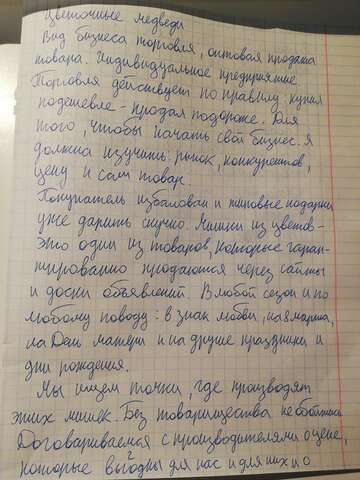 Цветочные медведи
Вид бизнеса торговля, оптовая продажа
товара. Индивидуальное предприятие
Торговля действует по правилу: купил
подешевле - продал подороже. Для
того, чтобы начать свой бизнес. Я
должна изучить: рынок, конкурентов,
цену и сам товар.
Покупатель избалован и типовые подарки
уже дарить скучно. Мишки из цветов -
это один из товаров, которые гаран-
тированно продаются через сайты
и доски объявлений. В любой сезон и по
любому поводу: в знак любви, на 8 марта,
на День матери и на другие праздники и
дни рождения.
Мы ищем точки, где производят
этих мишек. Без товарищества не обойтись
Договариваемся с производителями о цене,
которые выгодны для нас и для них и о
2